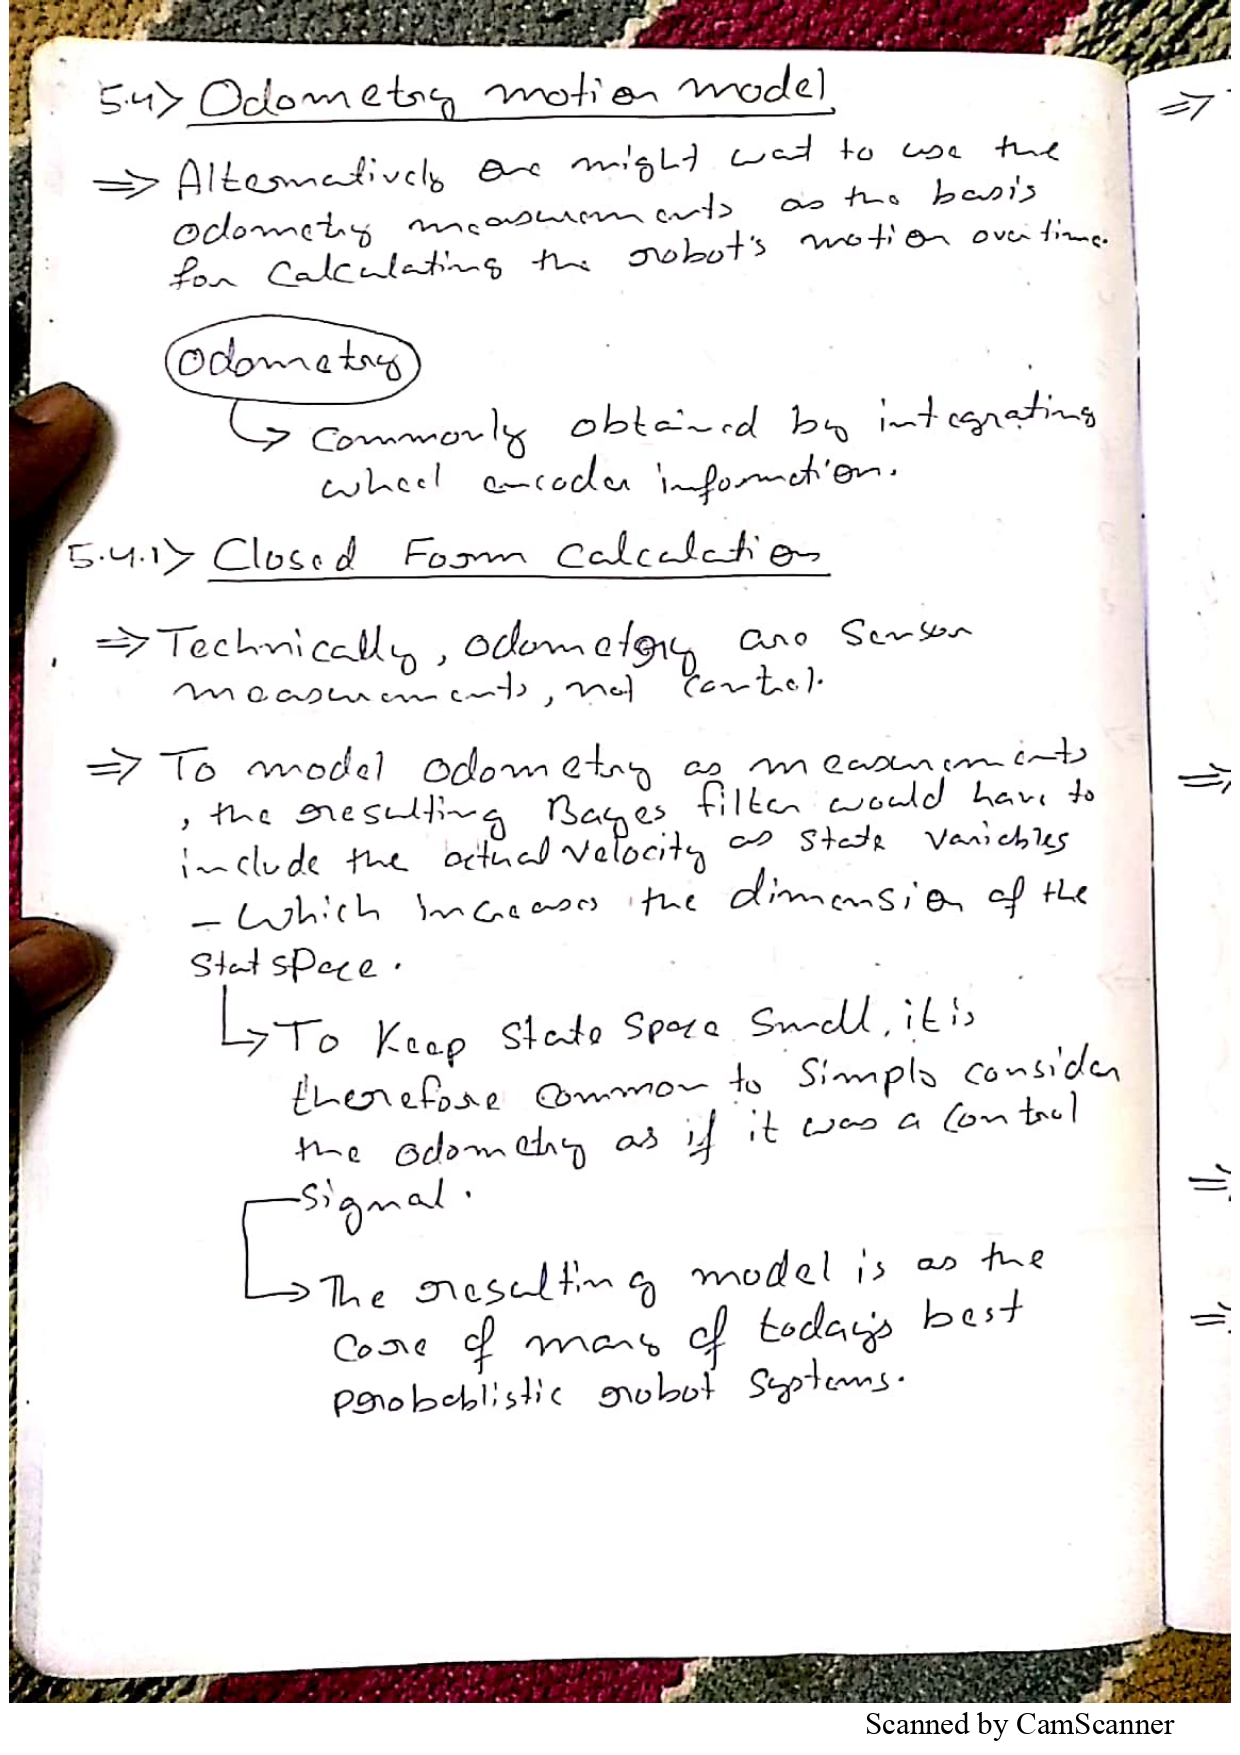 5.4> Odometry motion model
⇒ Alternatively one might wat to use the
odometry measurements as the basis
for calculating the robot's motion over time.
Odometry
↳ Commonly obtained by integrating
wheel encoder information.
5.4.1> Closed Form Calculation
⇒ Technically, odometry are sensor
measurements, not control.
⇒ To model odometry as measurements
, the resulting Bayes filter would have to
include the actual velocity as state variables
– Which increases the dimension of the
Stat space.
↳ To Keep state space small, it is
therefore common to simply consider
the odometry as if it was a control
signal.
↳ The resulting model is as the
core of many of today's best
probablistic robot systems.
⇒
⇒
⇒
⇒
Scanned by CamScanner